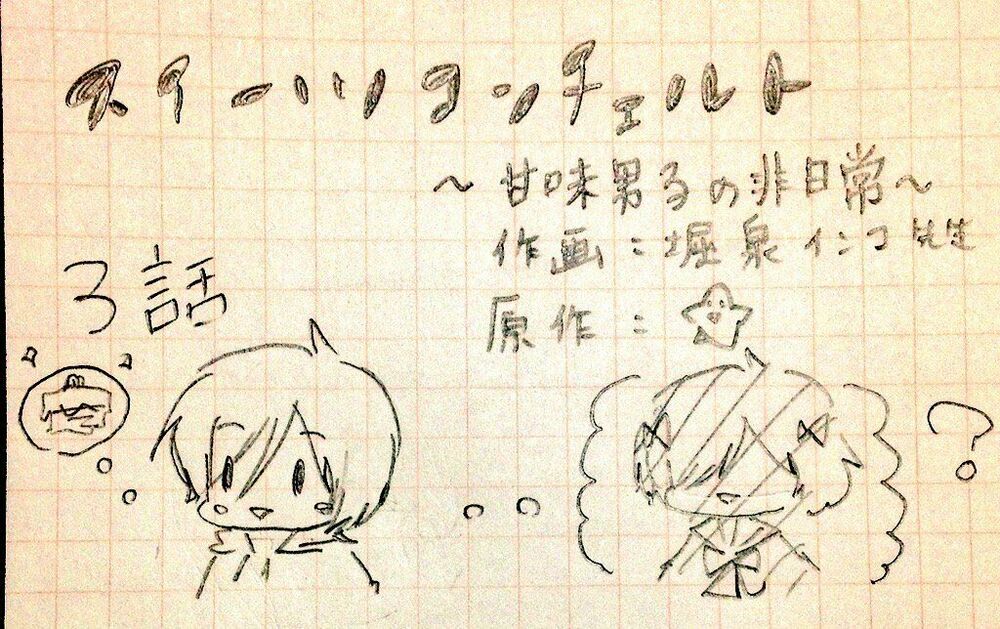 スイーツコンチェルト
～甘味男子の非日常～
作画：堀泉インコ先生
原作：
3話
？